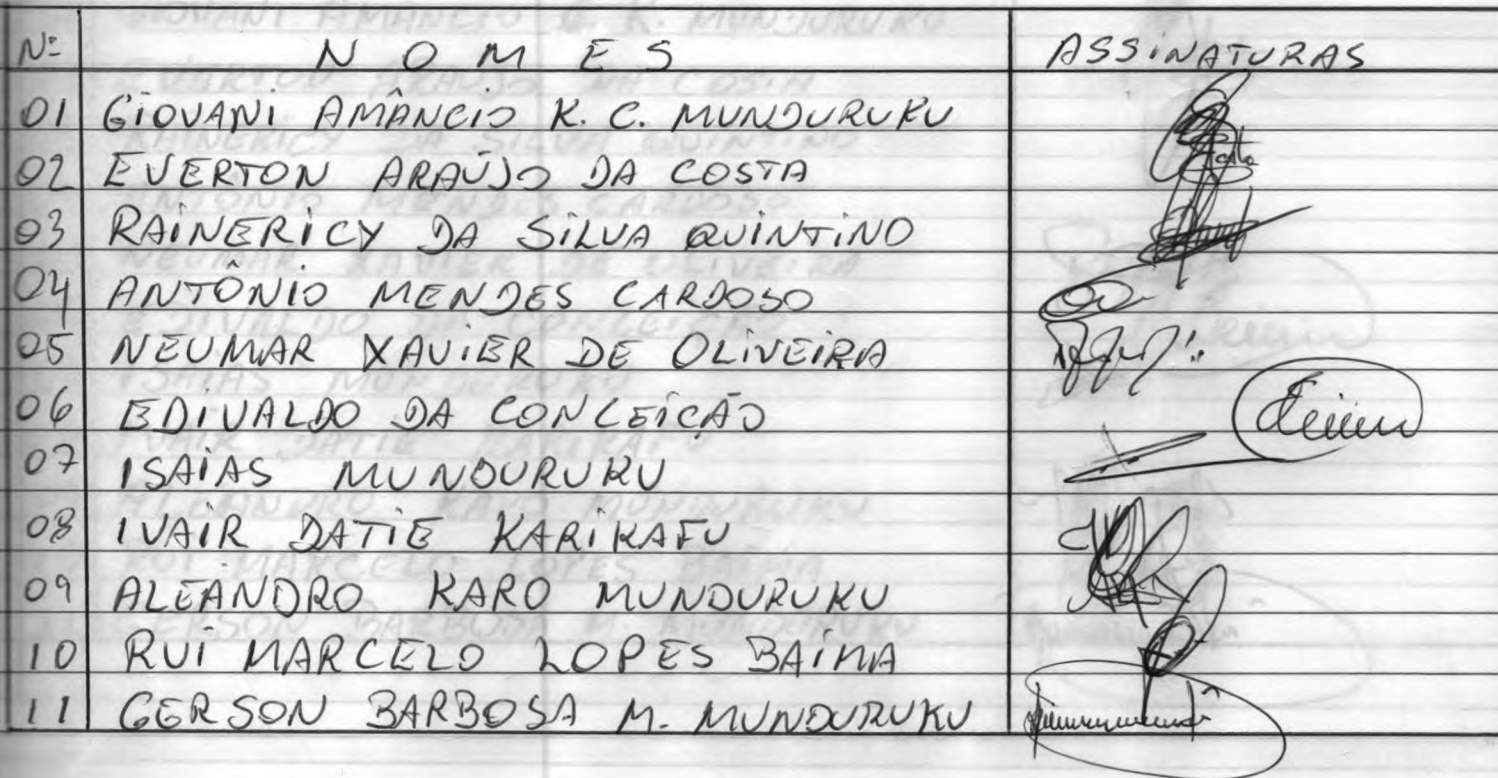 Nº NOMES ASSINATURAS
01 GIOVANI AMÂNCIO K. C. MUNDURUKU
02 EVERTON ARAÚJO DA COSTA
03 RAINERICY DA SILVA QUINTINO
04 ANTÔNIO MENDES CARDOSO
05 NEUMAR XAVIER DE OLIVEIRA
06 EDIVALDO DA CONCEIÇÃO
07 ISAIAS MUNDURUKU
08 IVAIR DATIE KARIKAFU
09 ALEANDRO KARO MUNDURUKU
10 RUI MARCELO LOPES BAIMA
11 GERSON BARBOSA M. MUNDURUKU